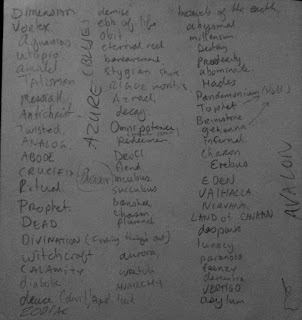 DIMENSION
Vortex
Aquarius
utopia
amulet
Talisman
Messiah
Antichrist
Twisted
ANALOG
ABODE
CRUCIFIX
Ritual
Prophet
DEAD
DIVINATION (finding things out)
Witchcraft
CALAMITY
diabolic
deuce (devil)
ZODIAC
demise
ebb of life
obit
eternal rest
bereavement
stygian shore
Azrael
decay
Omnipotency
Redeemer
Devil
fiend
incubus
succubus
banshee
chasm
aurora
wretch
ANARCHY
AZURE (BLUE)
bowels of the earth
abysmal
millenium
Perdition
abominate
Hades
Pandemonium (Hell)
Tophet
Brimstone
gehenna
infernal
charon
Erebus
EDEN
VALHALLA
NIRVANA
LAND of CANAAN
despair
lunacy
paranoia
frenzy
dementia
VERTIGO
asylum
AVALON